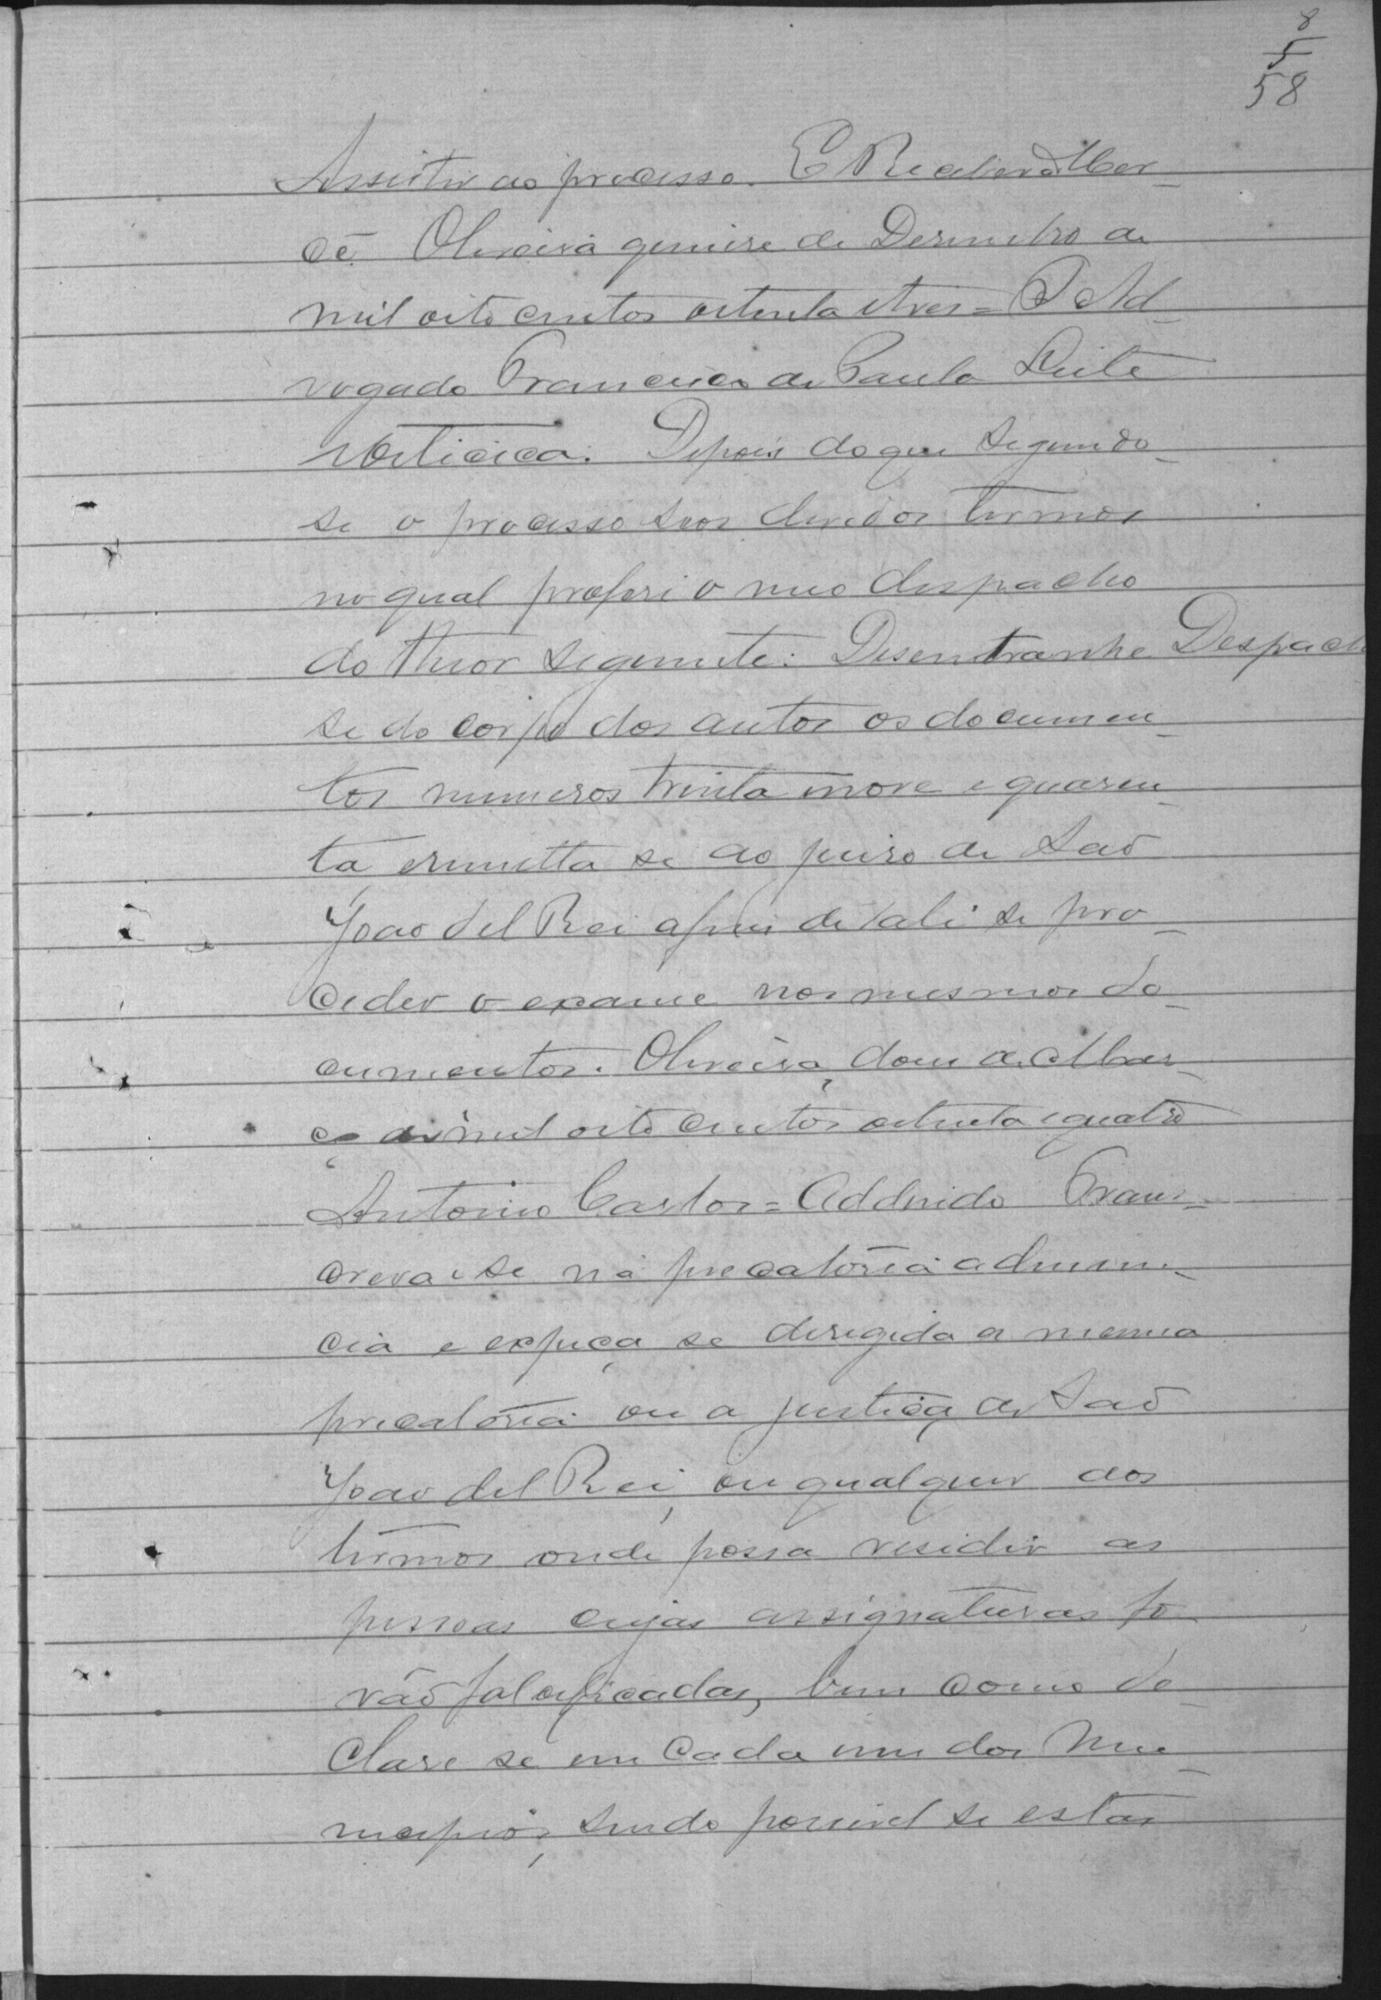 8
5
58
Assistir ao processo. E Receberá Mer-
cê Oliveira quinse de Desembro de
mil oito centos oitenta e tres = O Ad-
vogado Francisco de Paula Leite
Oiticica. Depois do que seguindo-
se o processo seos devidos termos
no qual proferi o meo despacho
do theor seguinte: Desentranhe Despacho
se do corpo dos autos os documen-
tos numeros trinta e nove e quaren-
ta e remetta se ao juiso de Saõ
Joao del Rei afim de alli se pro-
ceder o exame nos mesmos do-
cumentos. Oliveira, dous de Mar-
ço de mil oito centos oitenta e quatro
Antonio Carlos = Addindo Trans-
creva-se na precatoria a denun-
cia e expeça se dirigida a mesma
precatoria ou a justiça de Saõ
Joao del Rei, ou qualquer dos
termos onde possa residir as
pessoas cujas assignaturas fo-
raõ falsificadas, bem como de-
clare se em cada um dos Mu-
nicipios, sendo possivel se estas